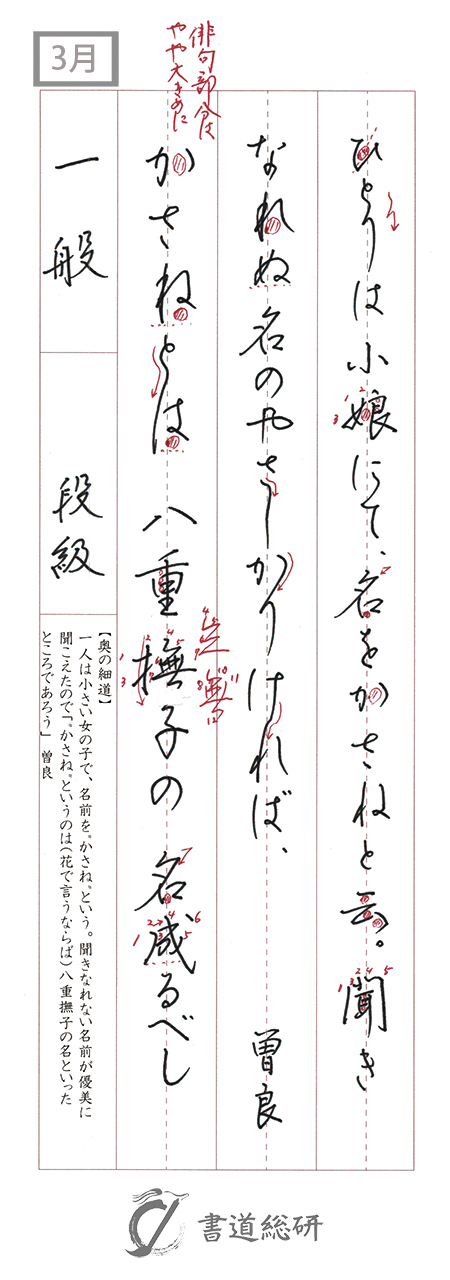 3月
俳句部分は
やや大きめに
ひとりは小娘にて、名をかさねと云。聞き
なれぬ名のやさしかりければ、
曽良
かさねとは 八重撫子の 名成るべし
一般
段級
【奥の細道】
一人は小さい女の子で、名前を"かさね"という。聞きなれない名前が優美に
聞こえたので「"かさね"というのは(花で言うならば)八重撫子の名といった
ところであろう」 曽良
書道総研